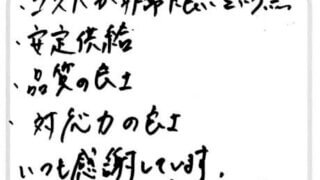 ・コストが非常に良いという点
・安定供給
・品質の良さ
・対応力の良さ
いつも感謝しています。